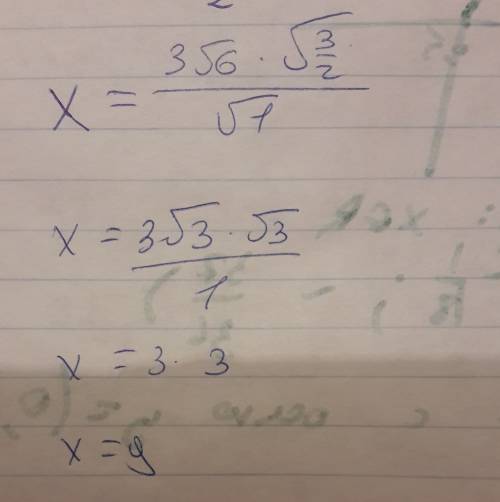 2
x = 3√6 · √(3/2) / √1
x = 3√3 · √3 / 1
x = 3 · 3
x = 9